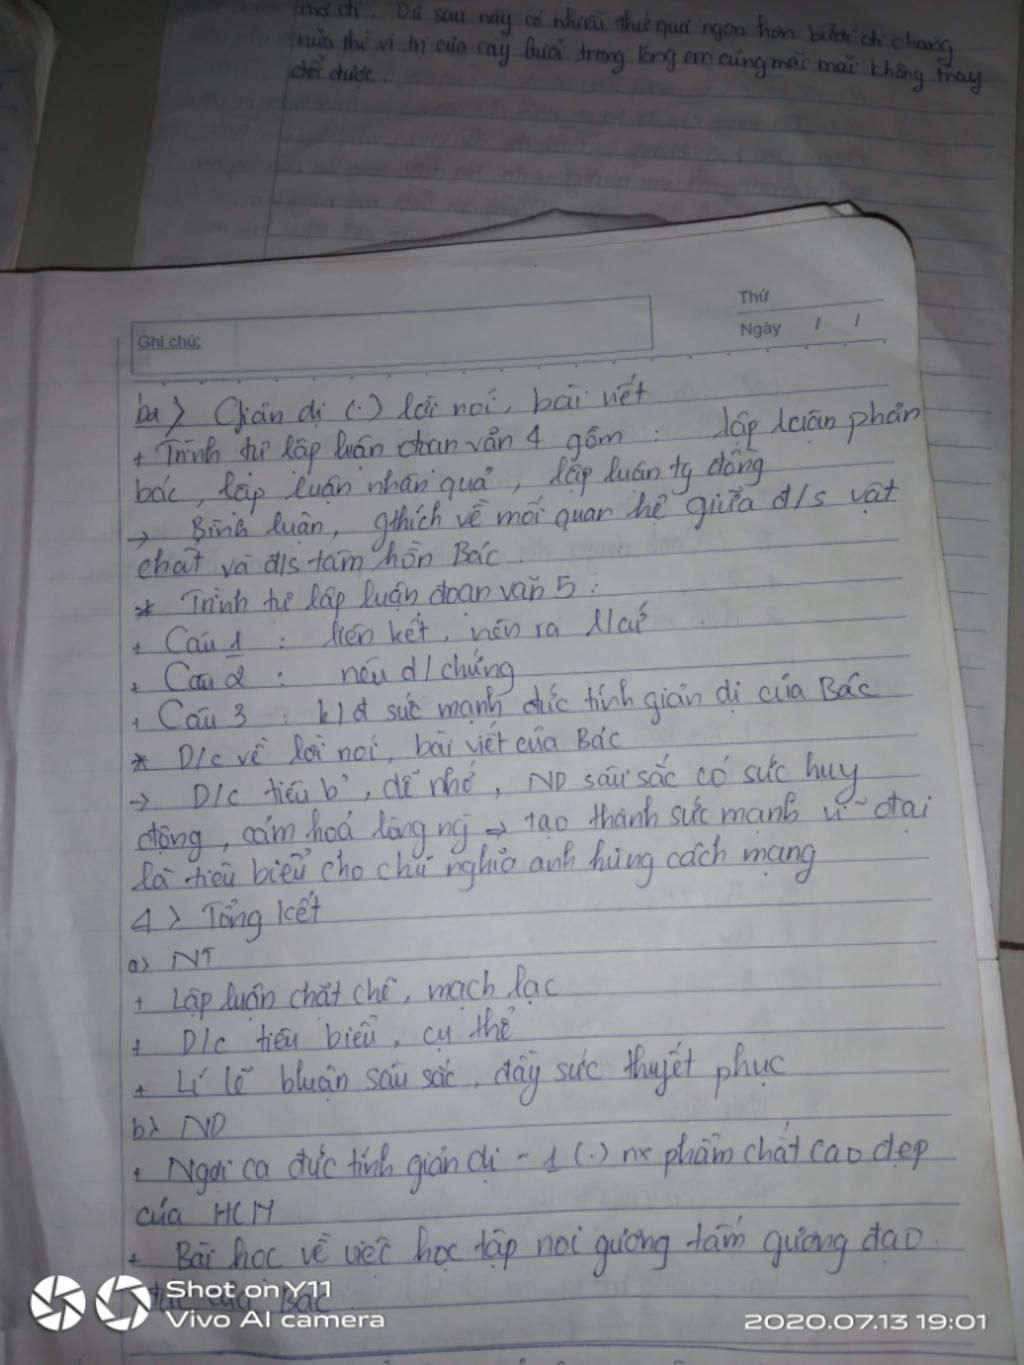 mơ ci. Dù sau này có nhiều thứ quả ngon hơn bưởi đi chăng
nữa thì vị trí của cây bưởi trong lòng em cũng mãi mãi không thay
đổi được.
Thứ
Ghi chú:
Ngày / /
b2> Giản dị (.) lời nói, bài viết
+ Trình tự lập luận đoạn văn 4 gồm : lập luận phản
bác, lập luận nhân quả, lập luận tg đồng
→ Bình luận, gthích về mối quan hệ giữa đ/s vật
chất và đ/s tâm hồn Bác.
* Trình tự lập luận đoạn văn 5 :
+ Câu 1 : liên kết, nên ra l/cứ
+ Câu 2 : nêu d/chứng
+ Câu 3 : k/đ sức mạnh đức tính giản dị của Bác
* D/c về lời nói, bài viết của Bác
→ D/c tiêu b', dễ nhớ, ND sâu sắc có sức huy
động, cảm hoá lòng ng → tạo thành sức mạnh vĩ đại
là tiêu biểu cho chủ nghĩa anh hùng cách mạng
4> Tổng kết
a> NT
+ Lập luận chặt chẽ, mạch lạc
+ D/c tiêu biểu, cụ thể
+ Lí lẽ bluận sâu sắc, đầy sức thuyết phục
b> ND
+ Ngợi ca đức tính giản dị - 1 (.) nx phẩm chất cao đẹp
của HCM
+ Bài học về việc học tập noi gương tấm gương đạo
đức của Bác.
Shot on Y11
Vivo AI camera
2020.07.13 19:01